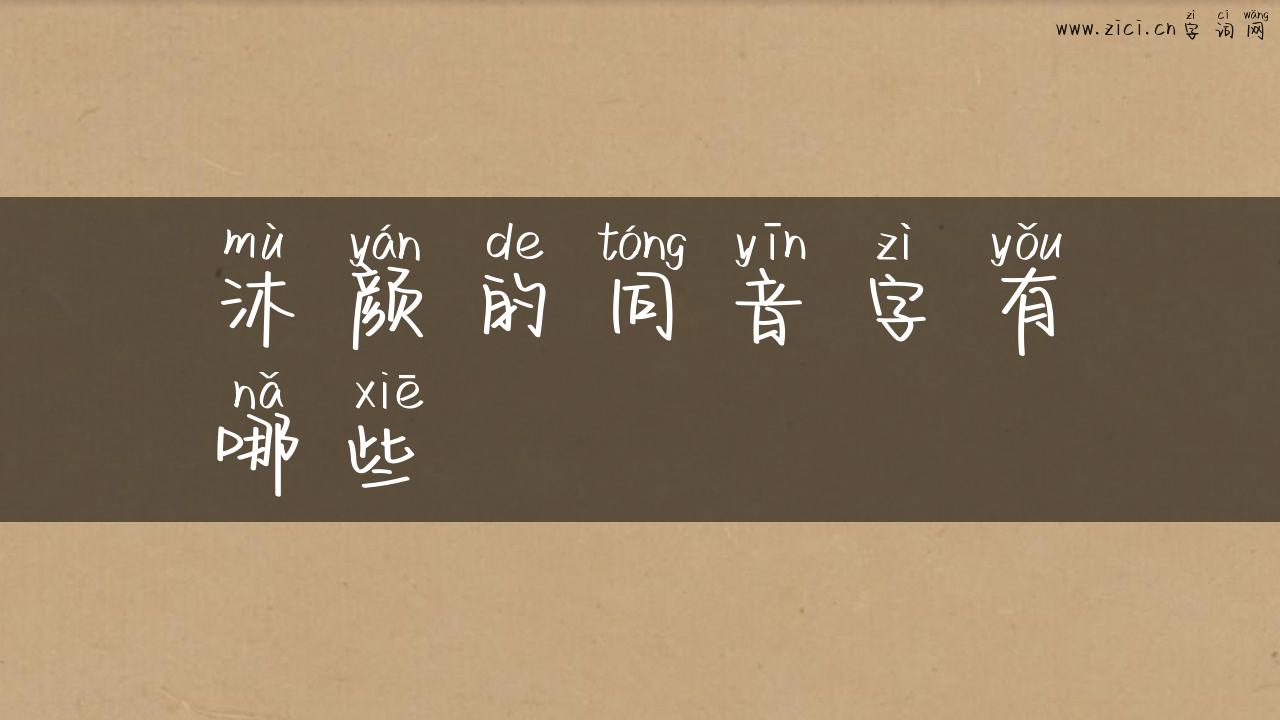 zì cí wǎng
www.zici.cn 字 词 网
mù yán de tóng yīn zì yǒu
沐 颜 的 同 音 字 有
nǎ xiē
哪 些